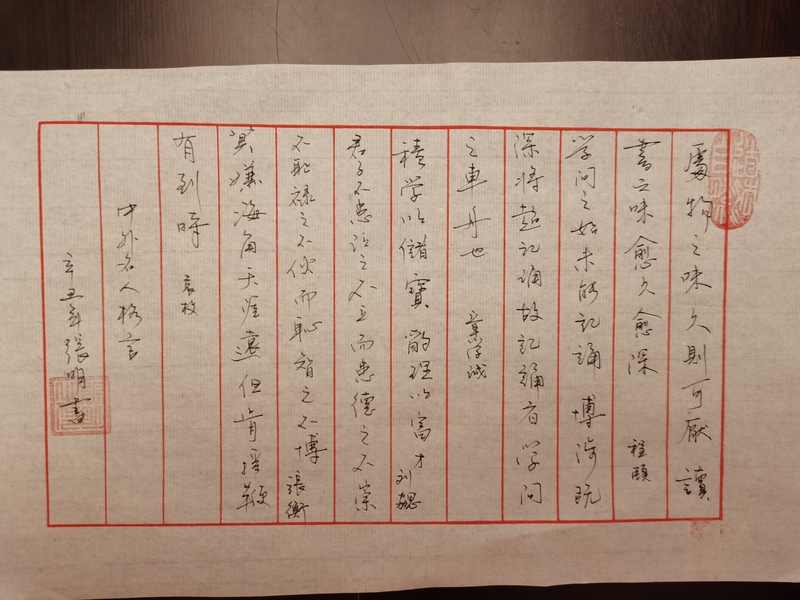 屬物之味久則可厭 讀
書之味愈久愈深 程頤
学问之始未能记诵 博涉既
深将超记诵故记诵者学问
之車舟也 葉学誠
積学以儲寶酌理以富才 刘勰
君子不患位之不立而患德之不崇
不耻禄之不伙而恥智之不博 張衡
莫嫌海角天涯遠但肯摇鞭
有到時 袁枚
中外名人格言
辛丑年張明書